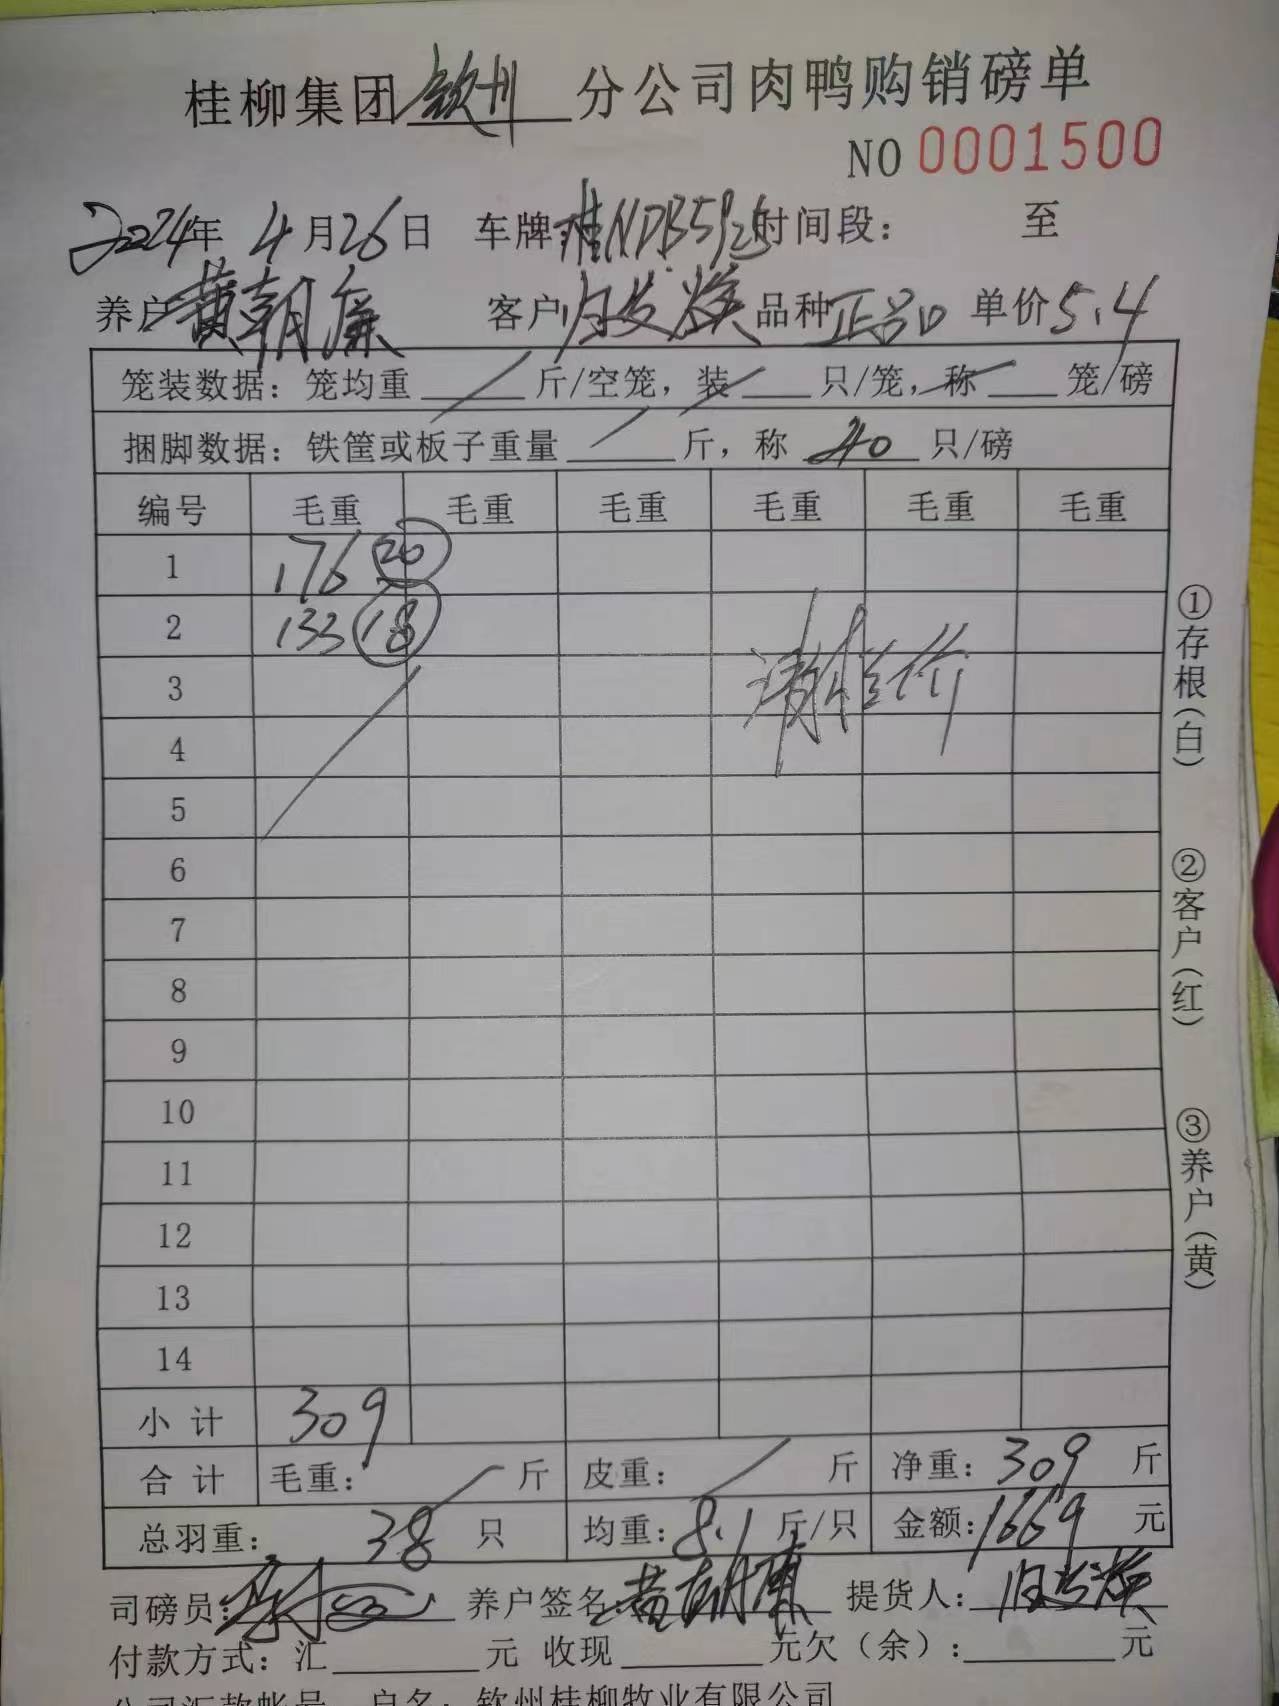 桂柳集团钦州分公司肉鸭购销磅单
NO 0001500
2024年 4月26日 车牌:桂NDB5925 时间段: 至
养户 黄朝廉 客户 发焕 品种 正品 单价5.4
笼装数据: 笼均重 斤/空笼, 装 只/笼, 称 笼/磅
捆脚数据: 铁筐或板子重量 斤, 称 40 只/磅
编号 毛重 毛重 毛重 毛重 毛重 毛重
1 176 20
2 133 18
3
4
5
6
7
8
9
10
11
12
13
14
小 计 309
合 计 毛重: 斤 皮重: 斤 净重: 309 斤
总羽重: 38 只 均重: 8.1 斤/只 金额: 1669 元
司磅员: 养户签名: 黄朝廉 提货人:
付款方式: 汇 元 收现 元欠(余): 元
公司汇款帐号 户名: 钦州桂柳牧业有限公司
①存根(白)
②客户(红)
③养户(黄)